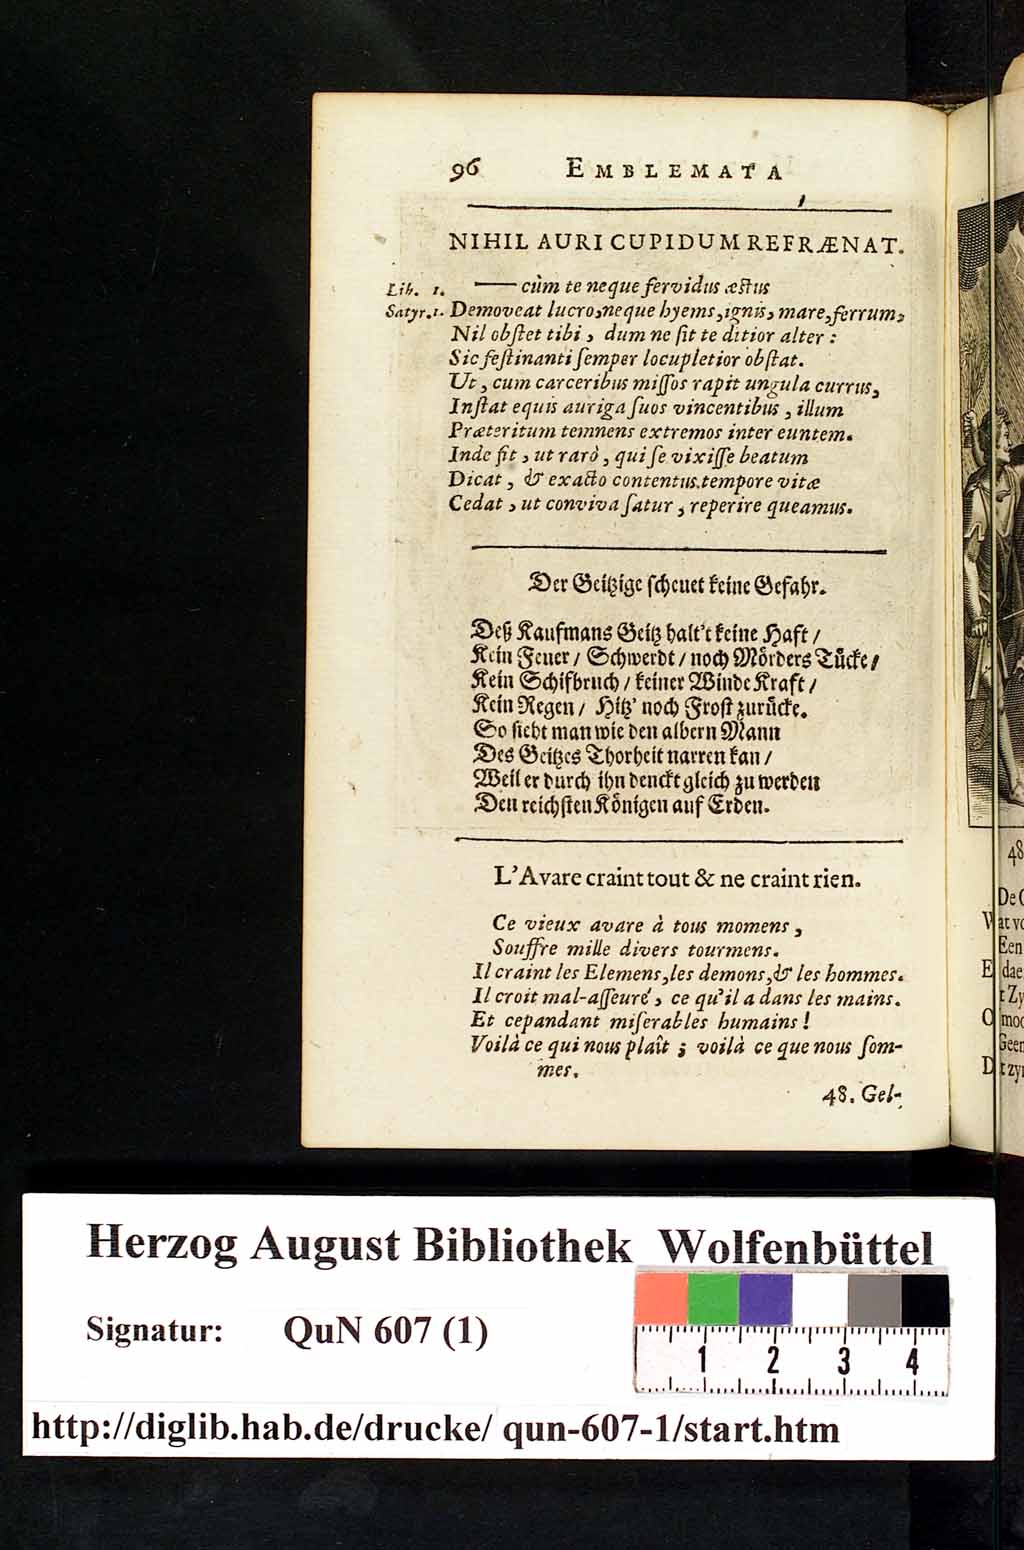 96 EMBLEMATA
NIHIL AURI CUPIDUM REFRÆNAT.
Lib. 1. —— cùm te neque fervidus æstus
Satyr. 1. Demoveat lucro, neque hyems, ignis, mare, ferrum,
Nil obstet tibi, dum ne sit te ditior alter:
Sic festinanti semper locupletior obstat.
Ut, cum carceribus missos rapit ungula currus,
Instat equis auriga suos vincentibus, illum
Præteritum temnens extremos inter euntem.
Inde fit, ut rarò, qui se vixisse beatum
Dicat, & exacto contentus tempore vitæ
Cedat, ut conviva satur, reperire queamus.
Der Geitzige scheuet keine Gefahr.
Deß Kaufmans Geitz halt't keine Haft /
Kein Feuer / Schwerdt / noch Mörders Tücke /
Kein Schifbruch / keiner Winde Kraft /
Kein Regen / Hitz' noch Frost zurücke.
So sieht man wie den albern Mann
Des Geitzes Thorheit narren kan /
Weil er durch ihn denckt gleich zu werden
Den reichsten Königen auf Erden.
L'Avare craint tout & ne craint rien.
Ce vieux avare à tous momens,
Souffre mille divers tourmens.
Il craint les Elemens, les demons, & les hommes.
Il croit mal-asseuré, ce qu'il a dans les mains.
Et cependant miserables humains!
Voilà ce qui nous plaît; voilà ce que nous som-
mes.
48. Gel-
48
De
Wat vo
Een
E dae
t Zy
O moo
Geen
Dat zyn
Herzog August Bibliothek Wolfenbüttel
Signatur: QuN 607 (1)
1 2 3 4
http://diglib.hab.de/drucke/ qun-607-1/start.htm